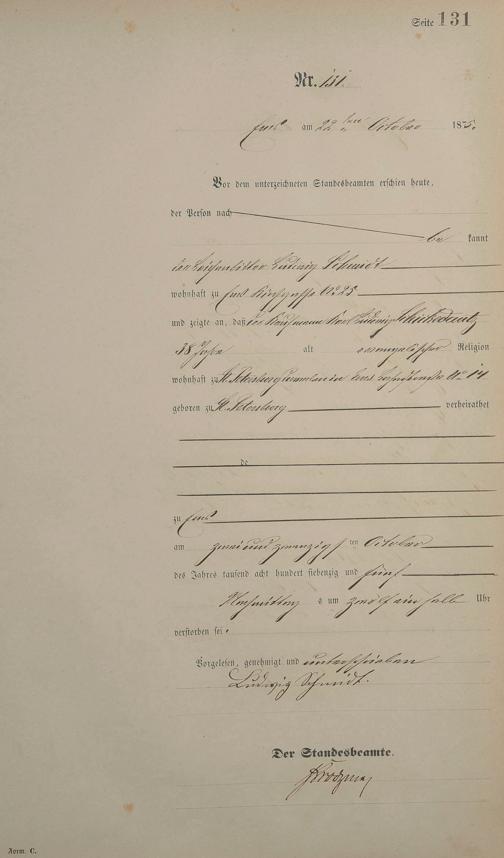 Seite 131
Nr. 131.
Ems am 22 ten October 1875.
Vor dem unterzeichneten Standesbeamten erschien heute,
der Person nach
be kannt
der Ludwig Schmidt
wohnhaft zu Ems No 25
und zeigte an, daß der Kaufmann Karl Ludwig
38 Jahre alt evangelischer Religion
wohnhaft zu St. Petersburg Ems No 14
geboren zu St. Petersburg verheirathet
de
zu Ems
am zwei und zwanzigs ten October
des Jahres tausend acht hundert siebenzig und fünf
Nachmittags um zwölf ein halb Uhr
verstorben sei.
Vorgelesen, genehmigt und unterschrieben
Ludwig Schmidt.
Der Standesbeamte.
Form. C.